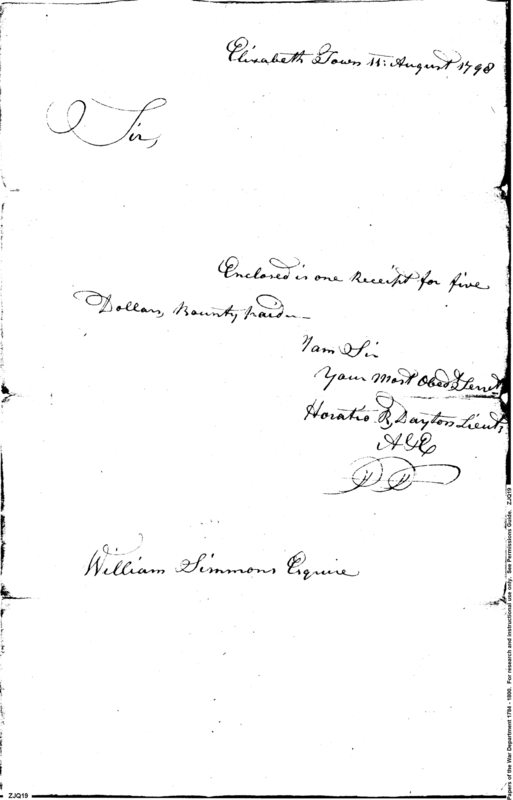 Elizabeth Town 11: August 1798
Sir,
Enclosed is one Receipt for five
Dollars, Bounty paid.—
I am Sir
Your Most Obedt Servt
Horatio R Dayton Lieut,
William Simmons Esquire
ZJQ19
Papers of the War Department 1784 - 1800. For research and instructional use only. See Permissions Guide. ZJQ19